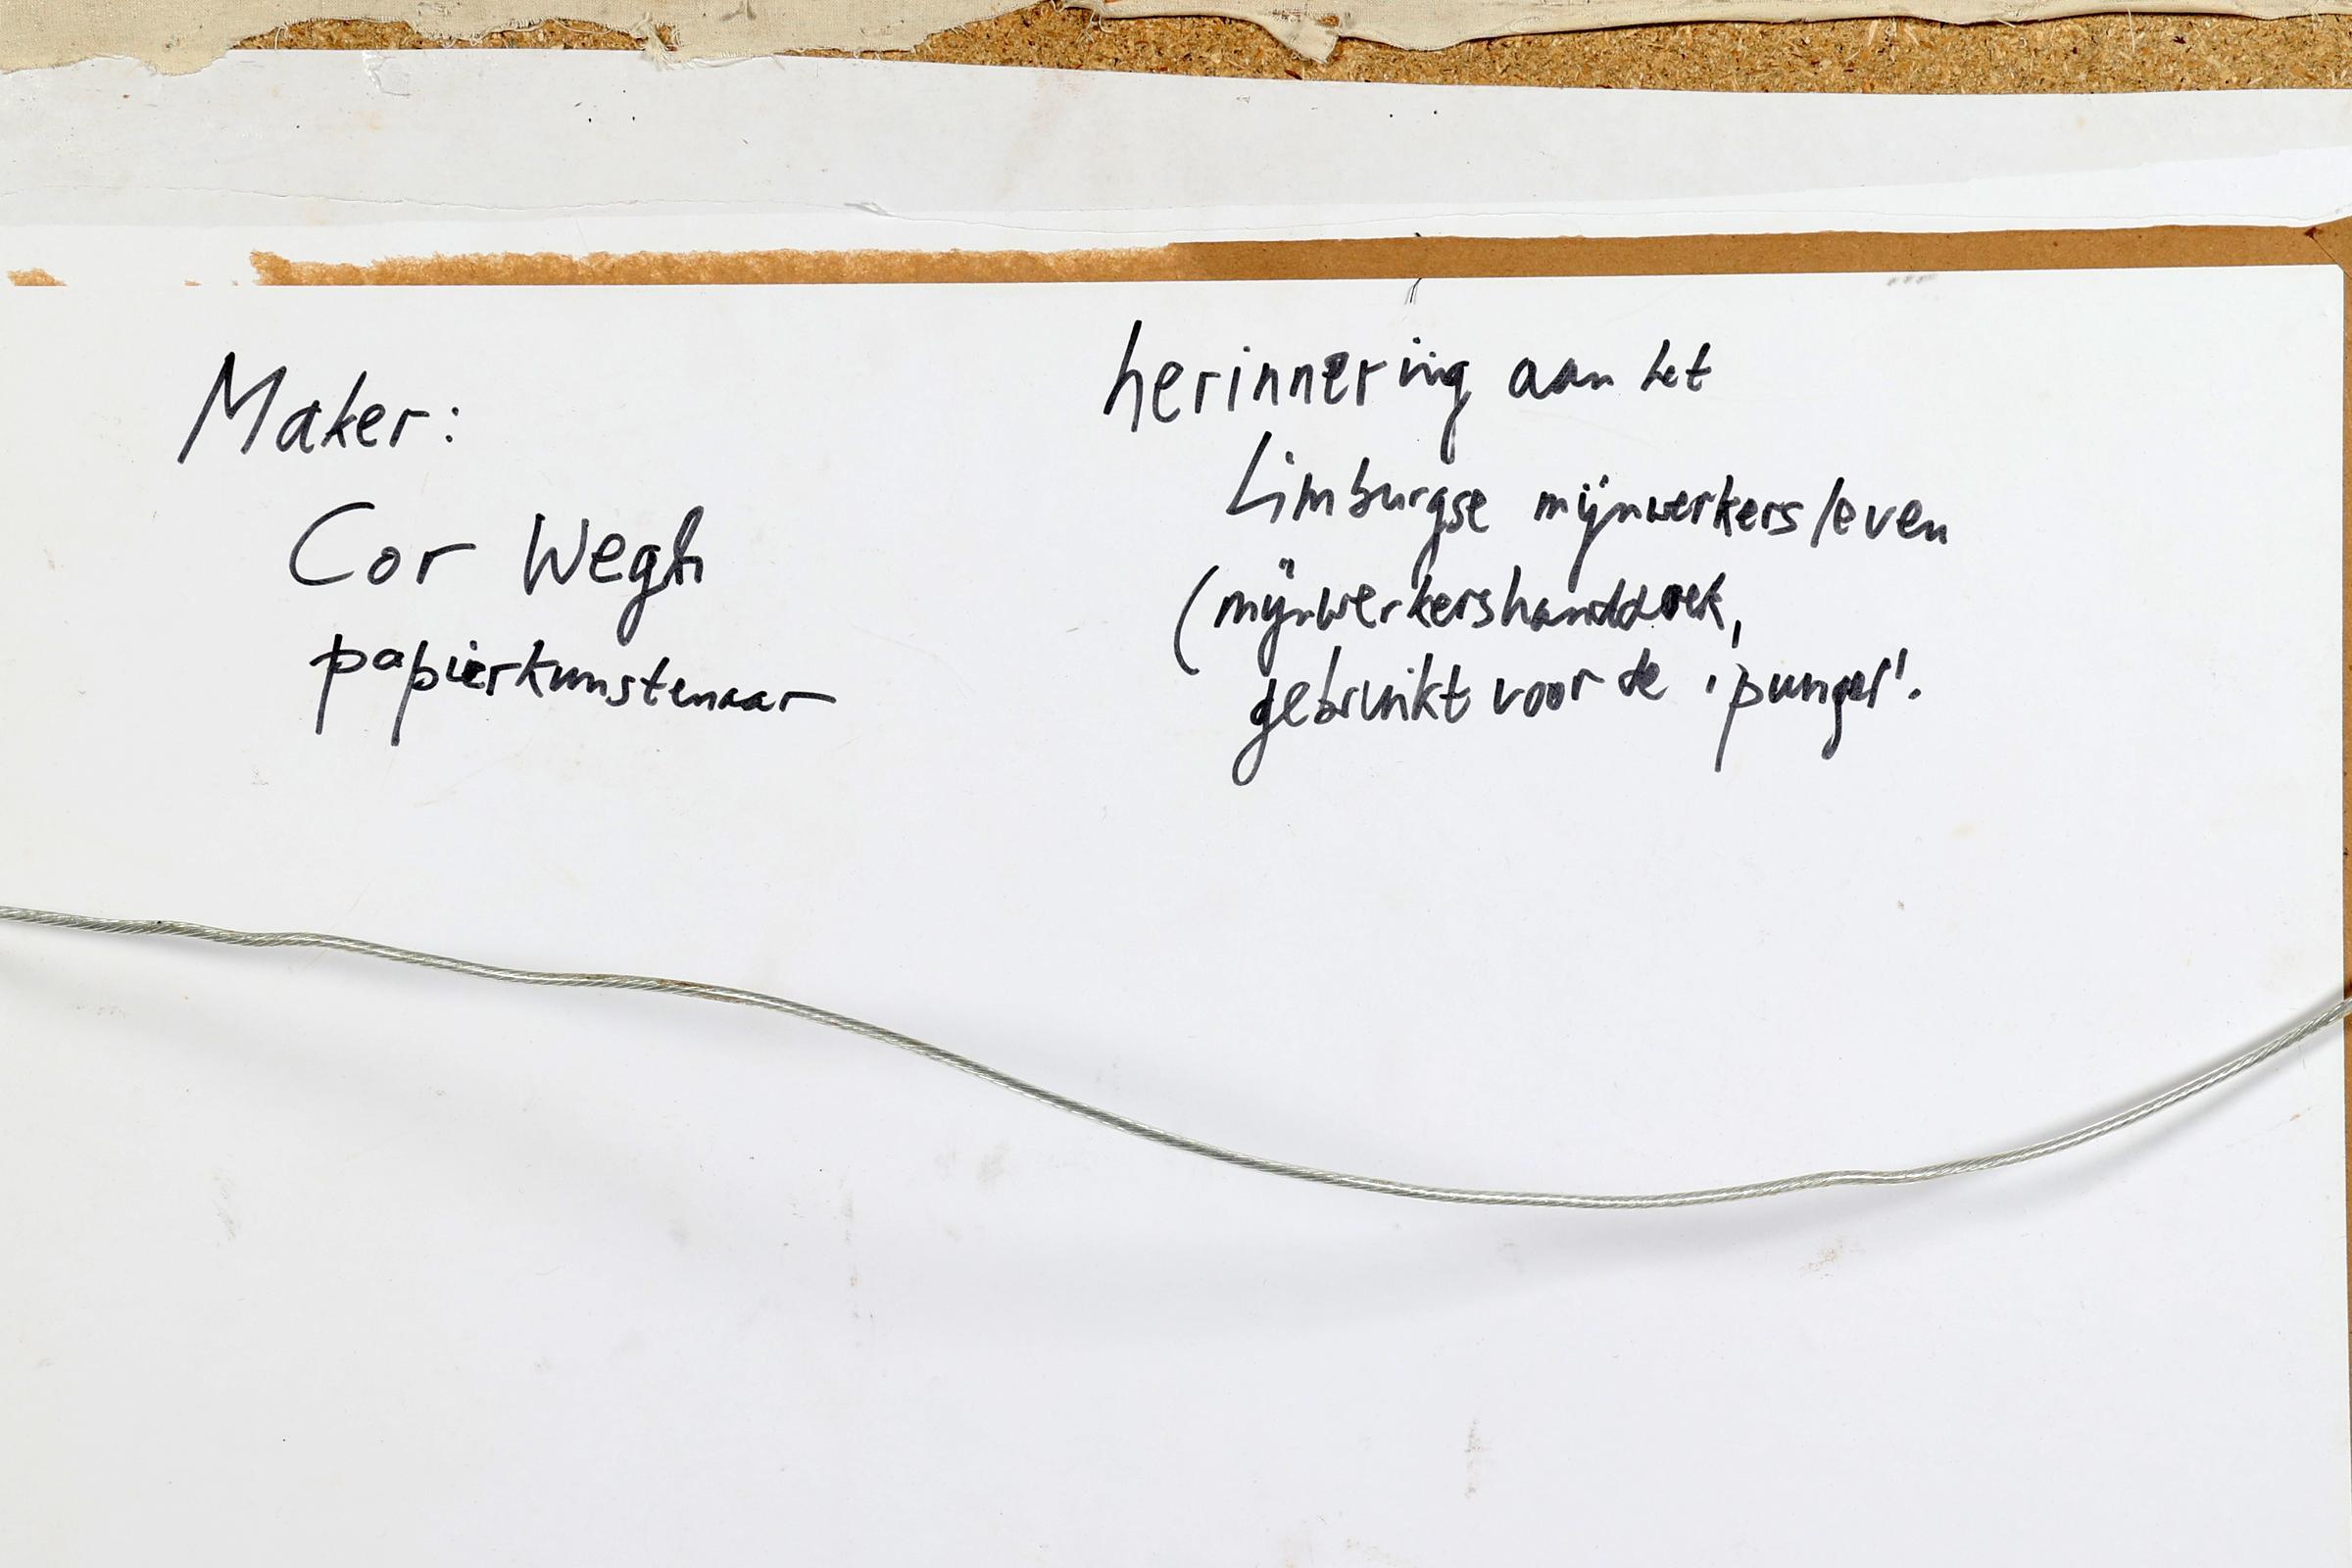 Maker:
Cor Wegh
papierkunstenaar
herinnering aan het
Limburgse mijnwerkersleven
(mijnwerkershanddoek,
gebruikt voor de 'punger'.